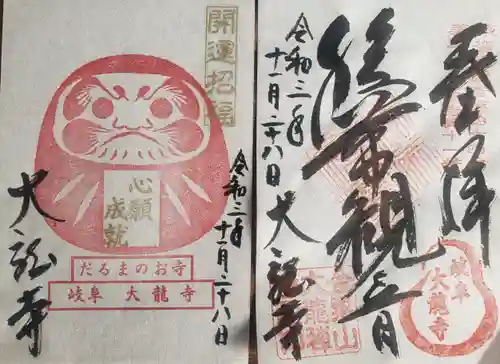 開運招福
心願
成就
だるまのお寺
岐阜 大龍寺
大龍寺
令和三年
十一月二十八日
奉拝
岐阜
大龍寺
大龍寺
令和三年
十一月二十八日